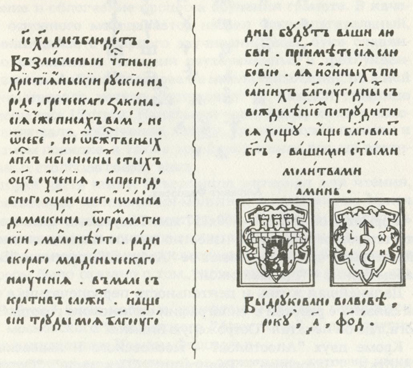 ї҃с ха да съблюдетъ ·
Възлюбленыи ч҃тныи
хрїстїаньскїи рускїи на
роде, греческаго закона.
сїѧ еже писах вам, не
ѿ себе, но ѿ бж҃твеныхъ
ап҃лъ и бг҃оносныхъ ст҃ыхъ
ѿц҃ъ ѹченїѧ, и преподо
бнаго ѿц҃а нашего іѡанна
дамаскина, ѿ грамати
кїи, мало нѣчто. ради
скораго младеньческаго
наѹченїѧ. въмале съ
кратив сложих. и аще
сїи труды моѧ благоуго
дны будутъ ваши лю
бви. прїимѣте сїѧ с лю
бовїю. а ꙗ и о иныхъ пи
санїихъ благоугодныхъ с
вожделѣнїем потрудити
сѧ хощу. аще благоволи
бг҃ъ, вашими ст҃ыми
молитвами
аминь ·
Выдруковано во лвовѣ,
року, ҂а, фод.